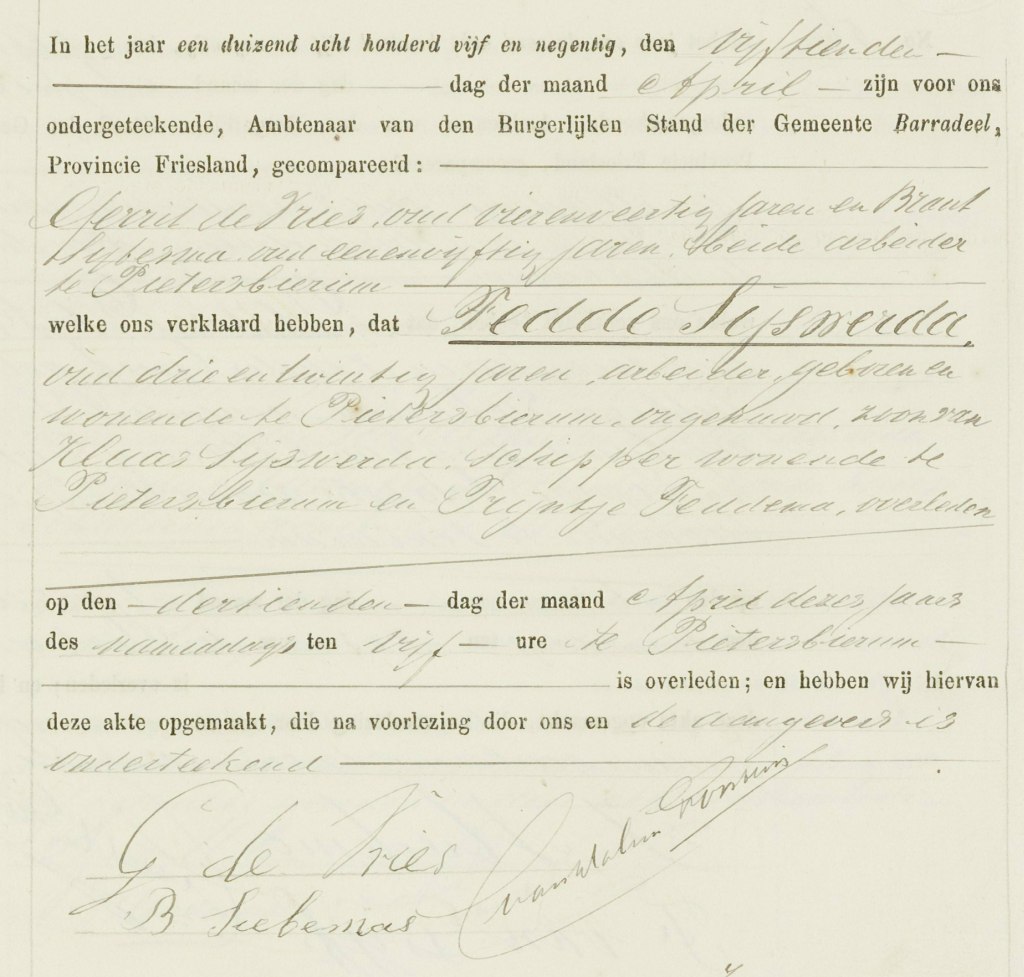 In het jaar een duizend acht honderd vijf en negentig, den vijftienden —
dag der maand April — zijn voor ons
ondergeteekende, Ambtenaar van den Burgerlijken Stand der Gemeente Barradeel,
Provincie Friesland, gecompareerd:
Gerrit de Vries, oud vierenveertig jaren en Brant
oud eenenvijftig jaren, beide arbeider
te Pietersbierum
welke ons verklaard hebben, dat Fedde Sijswerda,
oud drie en twintig jaren, arbeider, geboren en
wonende te Pietersbierum, ongehuwd, zoon van
Klaas Sijswerda, schipper wonende te
Pietersbierum en Trijntje Feddema, overleden
op den — dertienden — dag der maand April dezes jaars
des namiddags ten vijf — ure te Pietersbierum —
is overleden; en hebben wij hiervan
deze akte opgemaakt, die na voorlezing door ons en de aangevers is
onderteekend
G de Vries
B Siebemas